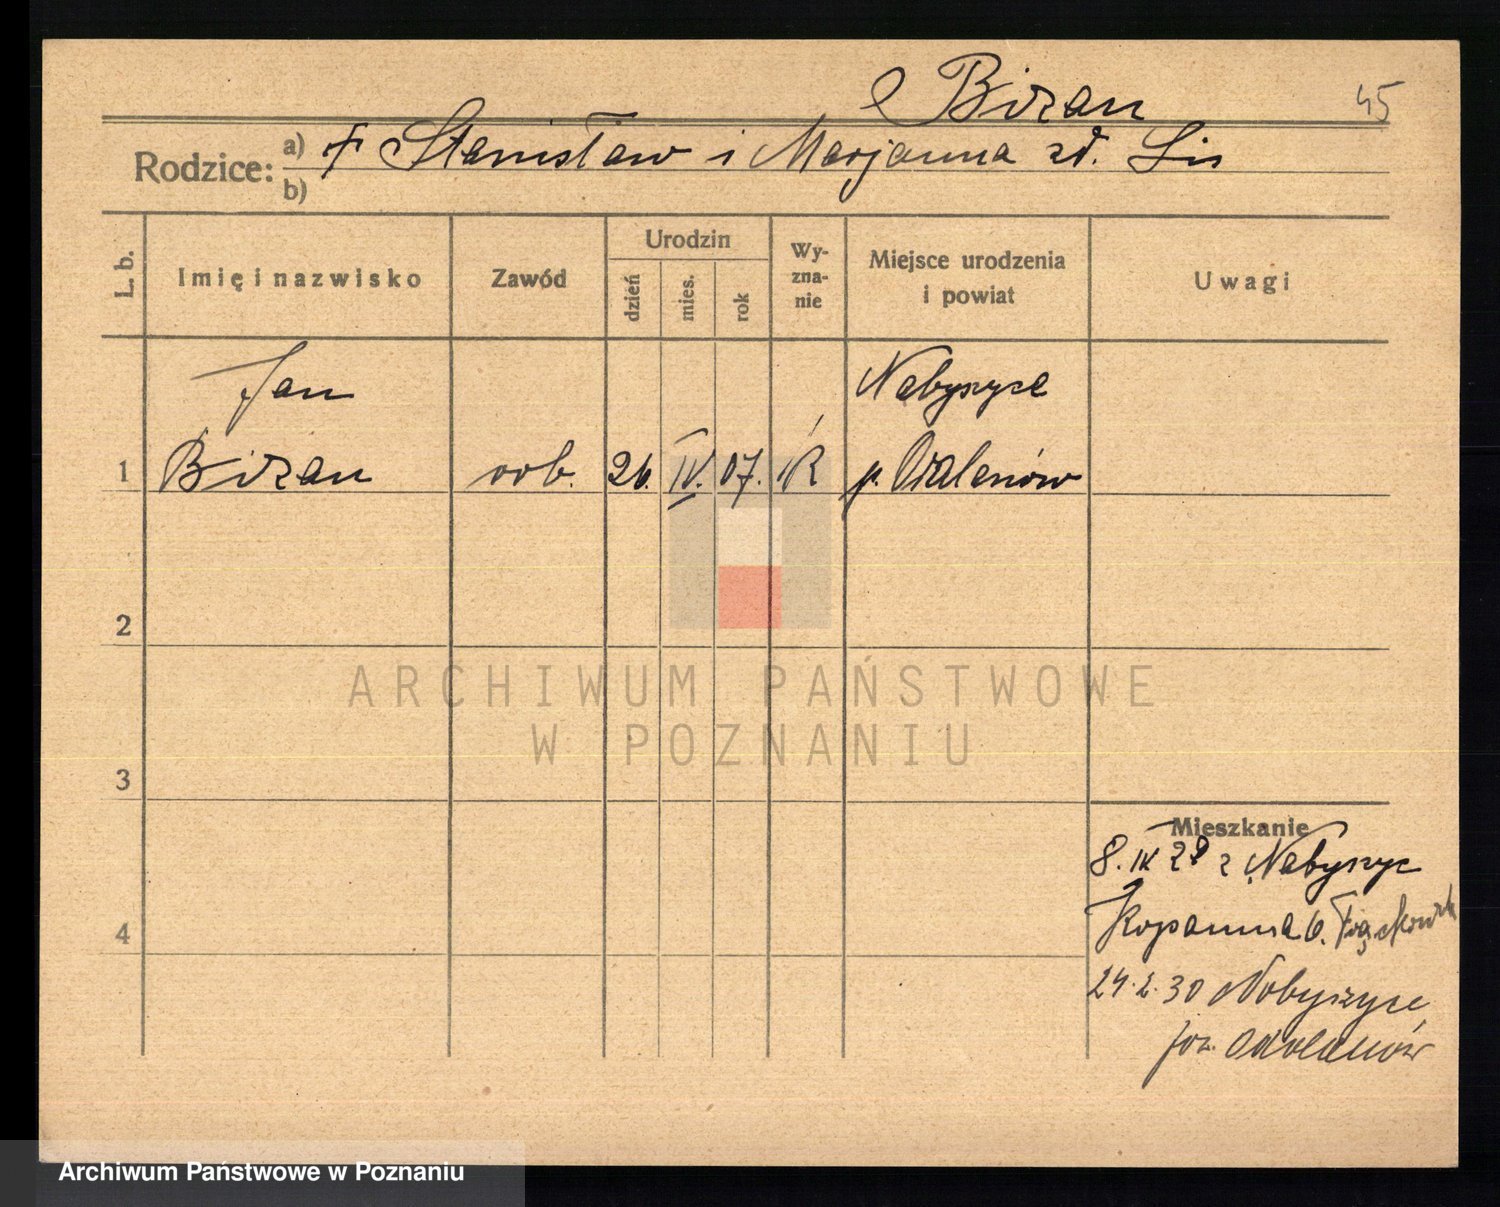 Bizan
45
Rodzice: a) † Stanisław i Marjanna zd. Lis
b)
L. b. Imię i nazwisko Zawód Urodzin dzień mies. rok Wyznanie Miejsce urodzenia i powiat Uwagi
Jan Nabyszyce
1 Bizan rob. 26. IV. 07. rk p. Odolanów
2
ARCHIWUM PAŃSTWOWE
W POZNANIU
3
Mieszkanie
8. IX 28 z Nabyszyc
4 Kopanina 6.
24.2.30 Nabyszyce
pow. Odolanów
Archiwum Państwowe w Poznaniu